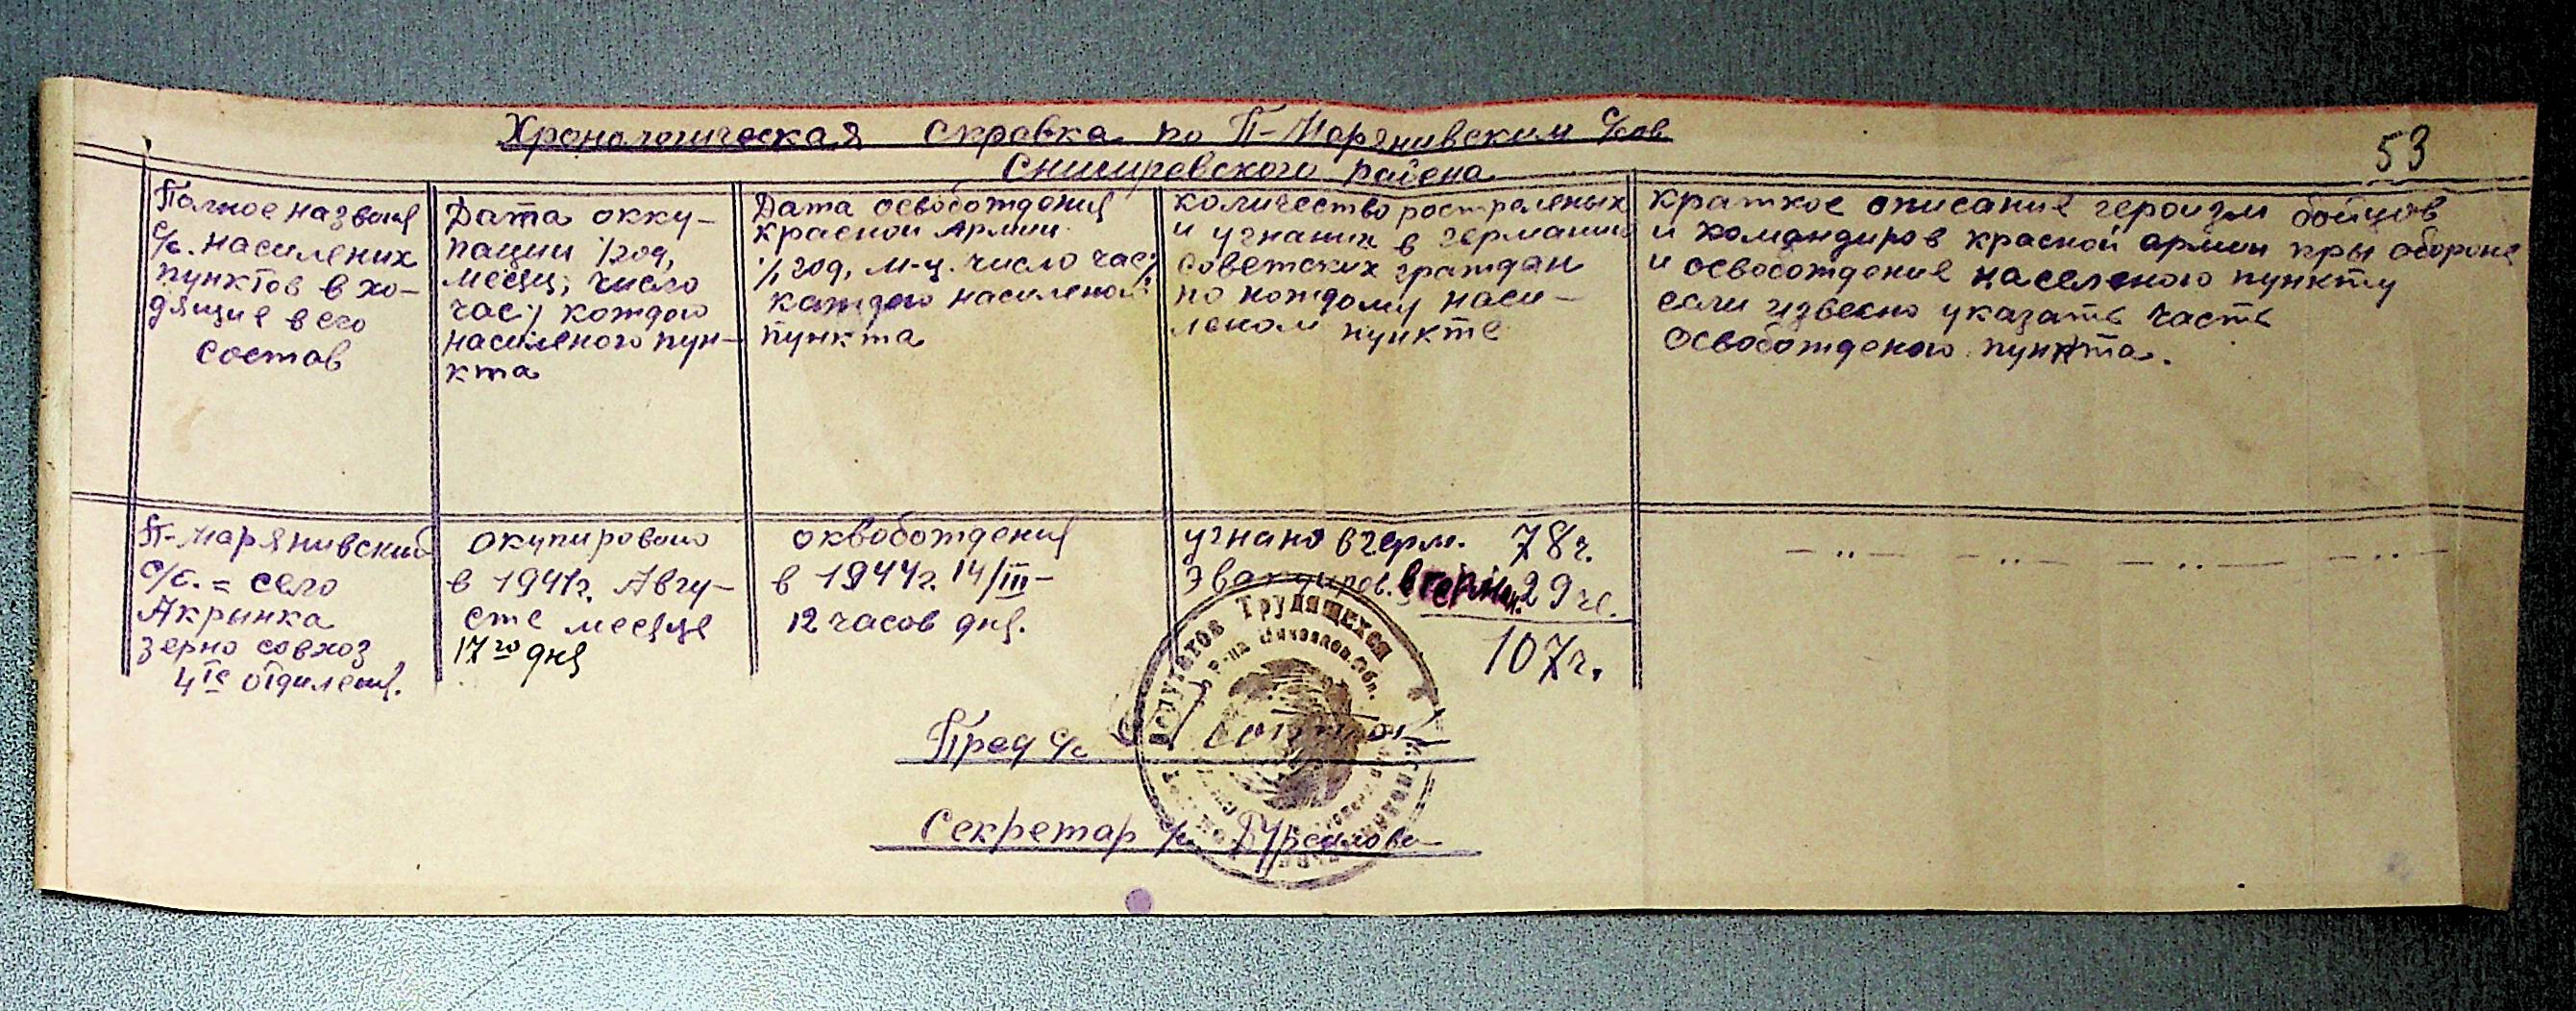 53
Хронологическая справка по П-Марянивским с/сов
Снигиревского района
Полное названя
с/с. насилених
пунктов в хо-
дящие в его
состав
Дата окку-
пации /год,
месяц, число
час/ кождого
насиленого пун-
кта
Дата освобождения
красной Армии
/год, м-ц. число час/
каждого насиленого
пункта
количество рострелених
и угнаних в германию
советских граждан
по кождому наси-
леном пункте
краткое описание героизм бойцов
и командиров красной армии пры обороне
и освобождение населеного пункту
если извесно указать часть
освобожденого пункта.
П-Марянивский
с/с. = село
Акрынка
зерно совхоз
4те отдиления.
окупировано
в 1941г. Авгу-
сте месяце
17го дня
оквобождения
в 1944г. 14/III-
12 часов дня.
угнано в герм. 78ч.
Эвакуиров. в герман. 29 ч.
107ч.
Депутатов Трудящихся
р-на Николаев. Обл.
Пред с/с
Секретар с/с